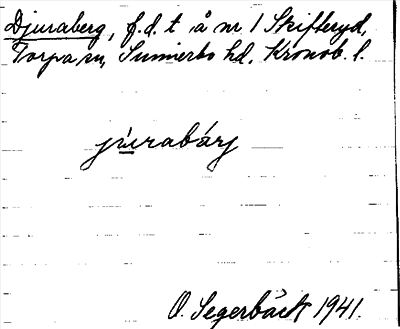 Djuraberg, f.d. t å nr 1 Skifteryd,
Torpa sn, Sunnerbo hd, Kronob. l.
júrabárj
O. Segerbäck 1941.